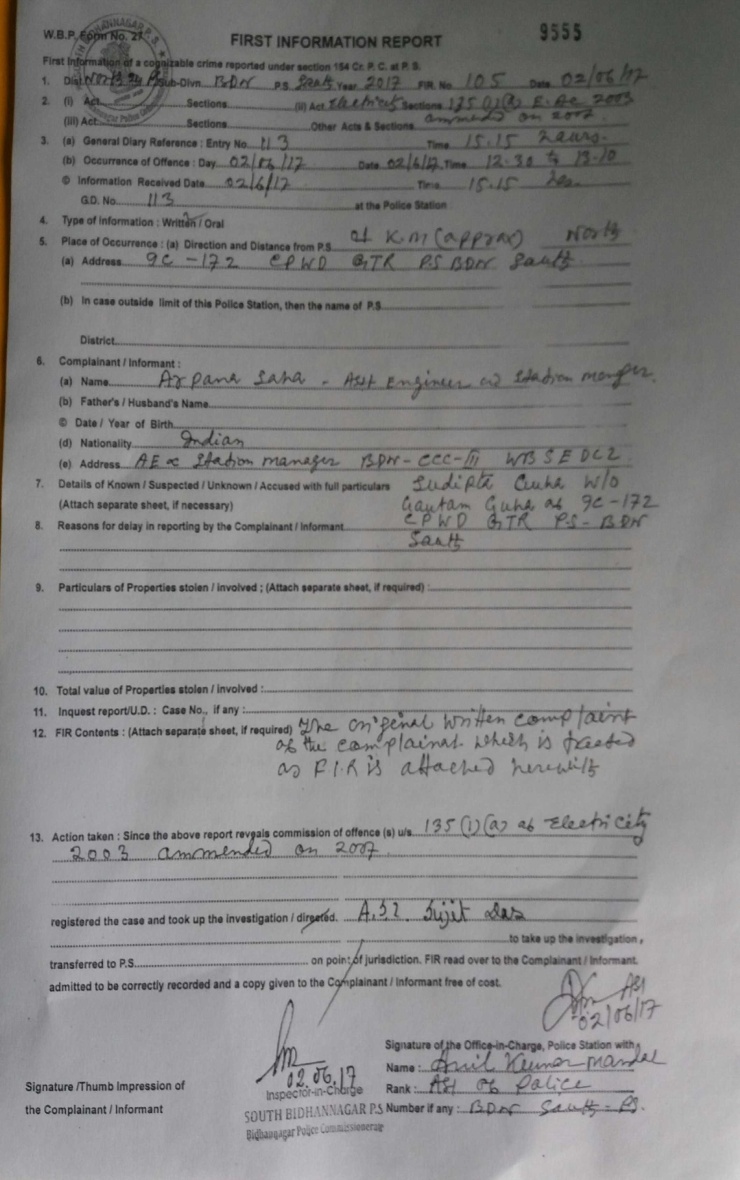 W.B.P. Form No. 27
9555
FIRST INFORMATION REPORT
First Information of a cognizable crime reported under section 154 Cr. P. C. at P. S.
1. Dist. North 24 Sub-Divn. BDN P.S. South Year 2017 FIR No. 105 Date 02/06/17
2. (i) Act Sections (ii) Act Electricity Sections 135 (1) (a) E. Ac 2003
ammended on 2007
(iii) Act Sections Other Acts & Sections
3. (a) General Diary Reference : Entry No. 113 Time 15.15 hours.
(b) Occurrence of Offence : Day 02/06/17 Date 02/6/17 Time 12.30 to 13.10
© Information Received Date 02/6/17 Time 15.15 hrs.
G.D. No. 113 at the Police Station
4. Type of Information : Written / Oral
5. Place of Occurrence : (a) Direction and Distance from P.S. KM (approx) North
(a) Address 9C - 172 CPWD QTR PS BDN South
(b) In case outside limit of this Police Station, then the name of P.S
District
6. Complainant / Informant :
(a) Name Arpana Saha - Asst Engineer Station manager.
(b) Father's / Husband's Name
© Date / Year of Birth
(d) Nationality Indian
(e) Address AE Station manager BDN - CCC - III WBSEDCL
7. Details of Known / Suspected / Unknown / Accused with full particulars Sudipta Guha W/O
(Attach separate sheet, if necessary) Gautam Guha of 9C - 172
8. Reasons for delay in reporting by the Complainant / Informant CPWD QTR PS - BDN
South
9. Particulars of Properties stolen / involved ; (Attach separate sheet, if required) :
10. Total value of Properties stolen / involved :
11. Inquest report/U.D. : Case No., if any :
12. FIR Contents : (Attach separate sheet, if required) The original written complaint
of the complainat which is treated
as F.I.R is attached herewith
13. Action taken : Since the above report reveals commission of offence (s) u/s. 135 (1) (a) of Electricity
2003 ammended on 2007
registered the case and took up the investigation / directed. A.S.I. Sujit Das
to take up the investigation,
transferred to P.S. on point of jurisdiction. FIR read over to the Complainant / Informant.
admitted to be correctly recorded and a copy given to the Complainant / Informant free of cost.
ASI
02/06/17
02.06.17
Inspector-in-Charge
SOUTH BIDHANNAGAR P.S
Bidhannagar Police Commissionerate
Signature of the Office-in-Charge, Police Station with
Name : Anil Kumar Mandal
Rank : ASI of Police
Number if any : BDN South - PS.
Signature /Thumb Impression of
the Complainant / Informant